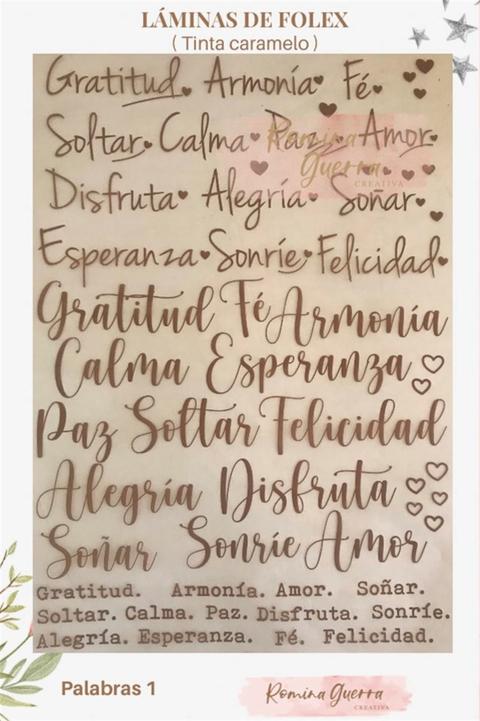 LÁMINAS DE FOLEX
( Tinta caramelo )
Gratitud Armonía Fé
Soltar Calma Paz Amor
Romina
Guerra
CREATIVA
Disfruta Alegría Soñar
Esperanza Sonríe Felicidad
Gratitud Fé Armonía
Calma Esperanza
Paz Soltar Felicidad
Alegría Disfruta
Soñar Sonríe Amor
Gratitud. Armonía. Amor. Soñar.
Soltar. Calma. Paz. Disfruta. Sonríe.
Alegría. Esperanza. Fé. Felicidad.
Palabras 1
Romina Guerra
CREATIVA